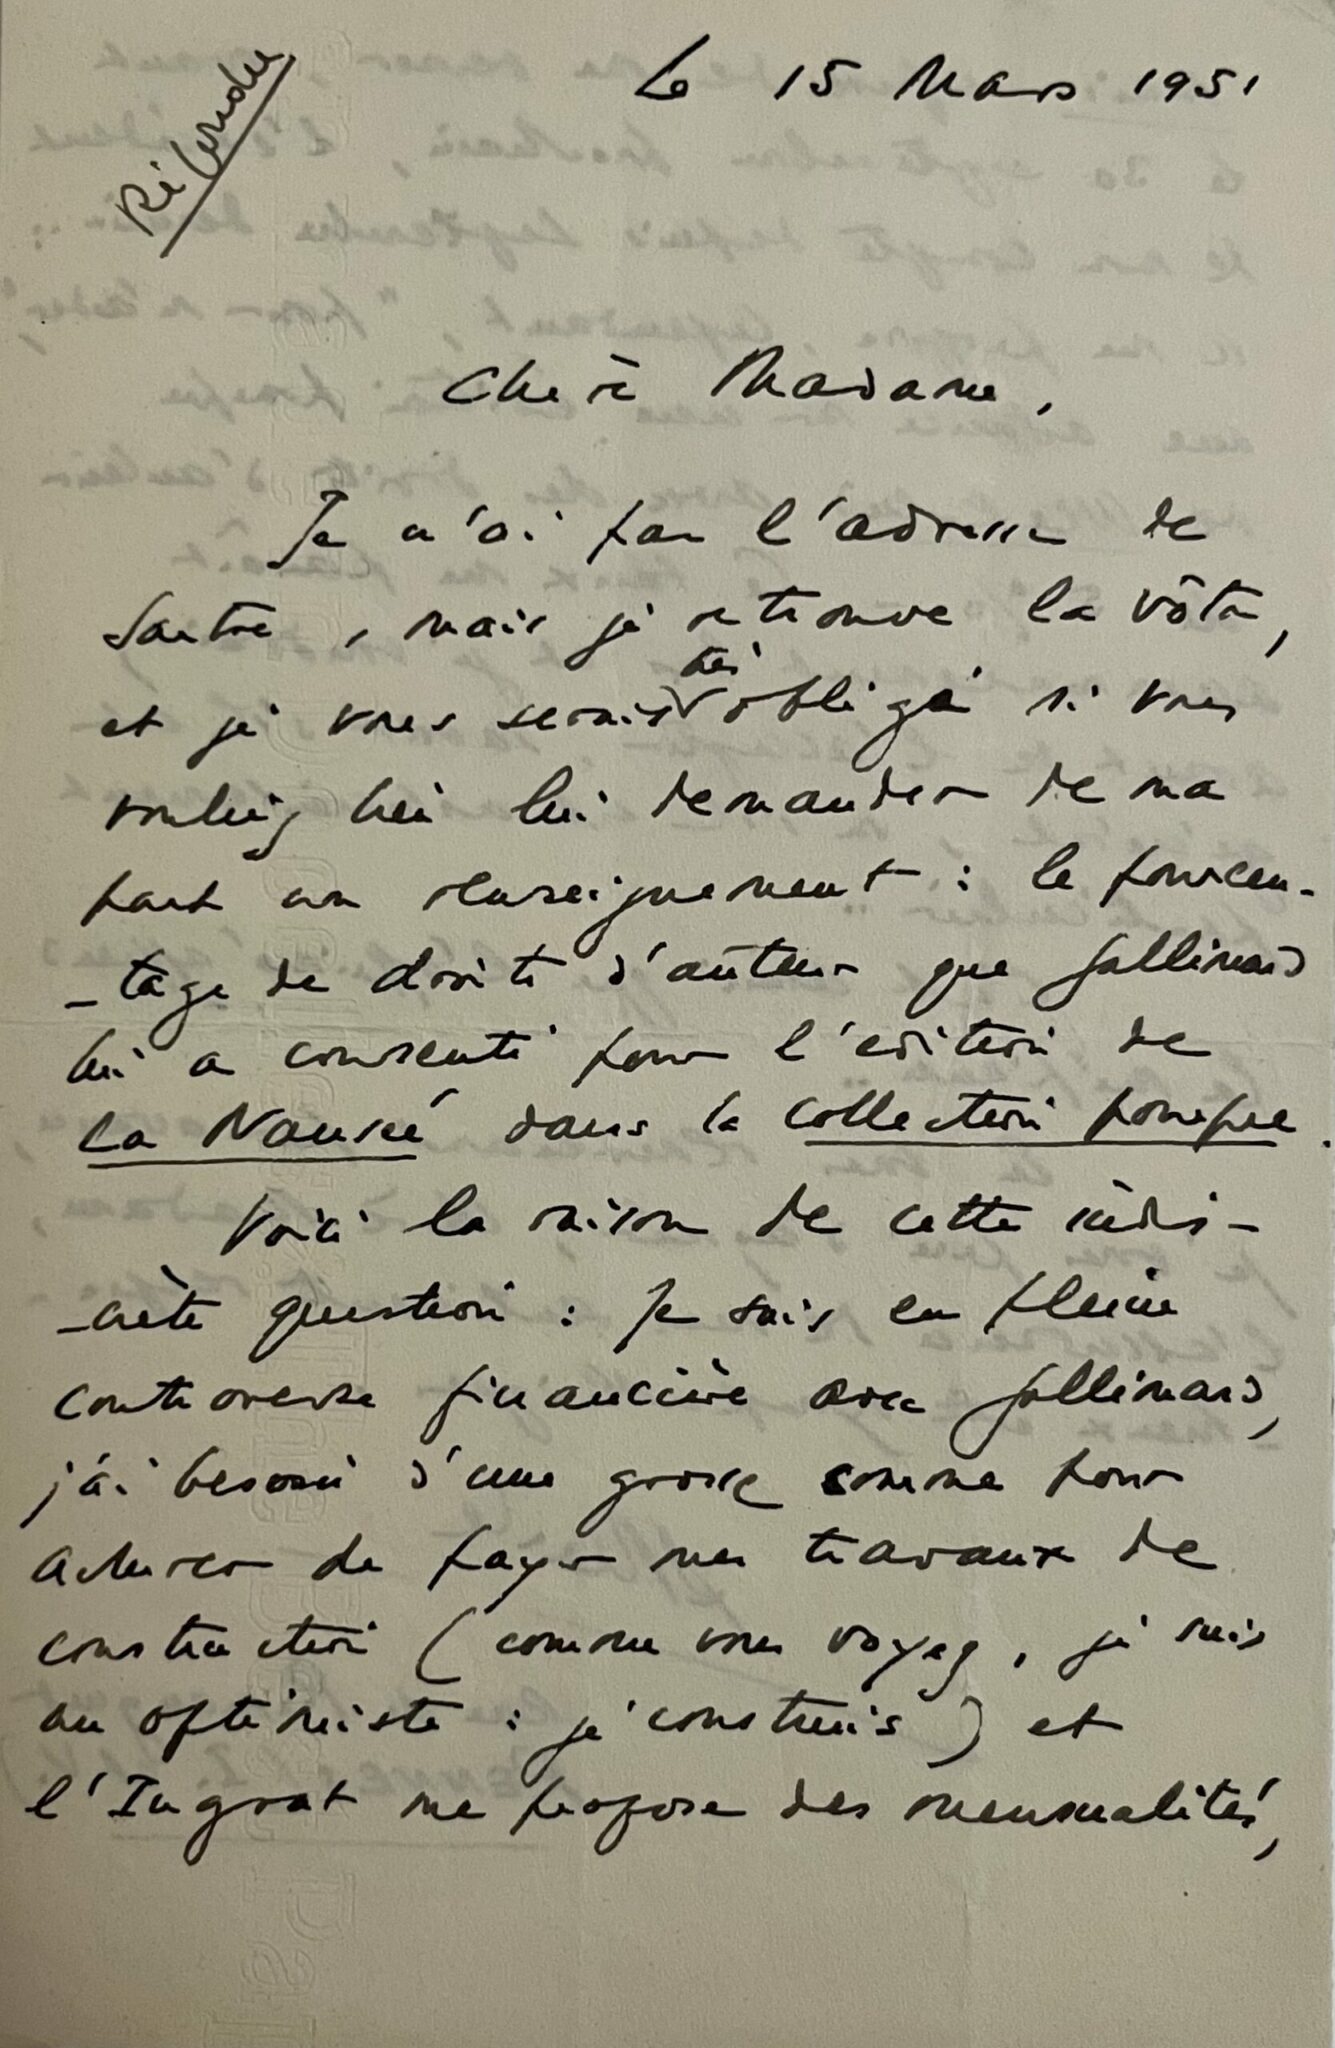 Répondu
Le 15 Mars 1951
Chère Madame,
Je n'ai pas l'adresse de
Sartre, mais je retrouve la vôtre,
très
et je vous serais obligé si vous
vouliez bien lui demander de ma
part un renseignement : le pourcen-
-tage de droits d'auteur que Gallimard
lui a consenti pour l'édition de
La Nausée dans la collection pourpre.
Voici la raison de cette indis-
-crète question : Je suis en pleine
controverse financière avec Gallimard,
j'ai besoin d'une grosse somme pour
achever de payer mes travaux de
construction (comme vous voyez, je suis
un optimiste : je construis) et
l'Ingrat me propose des mensualités,